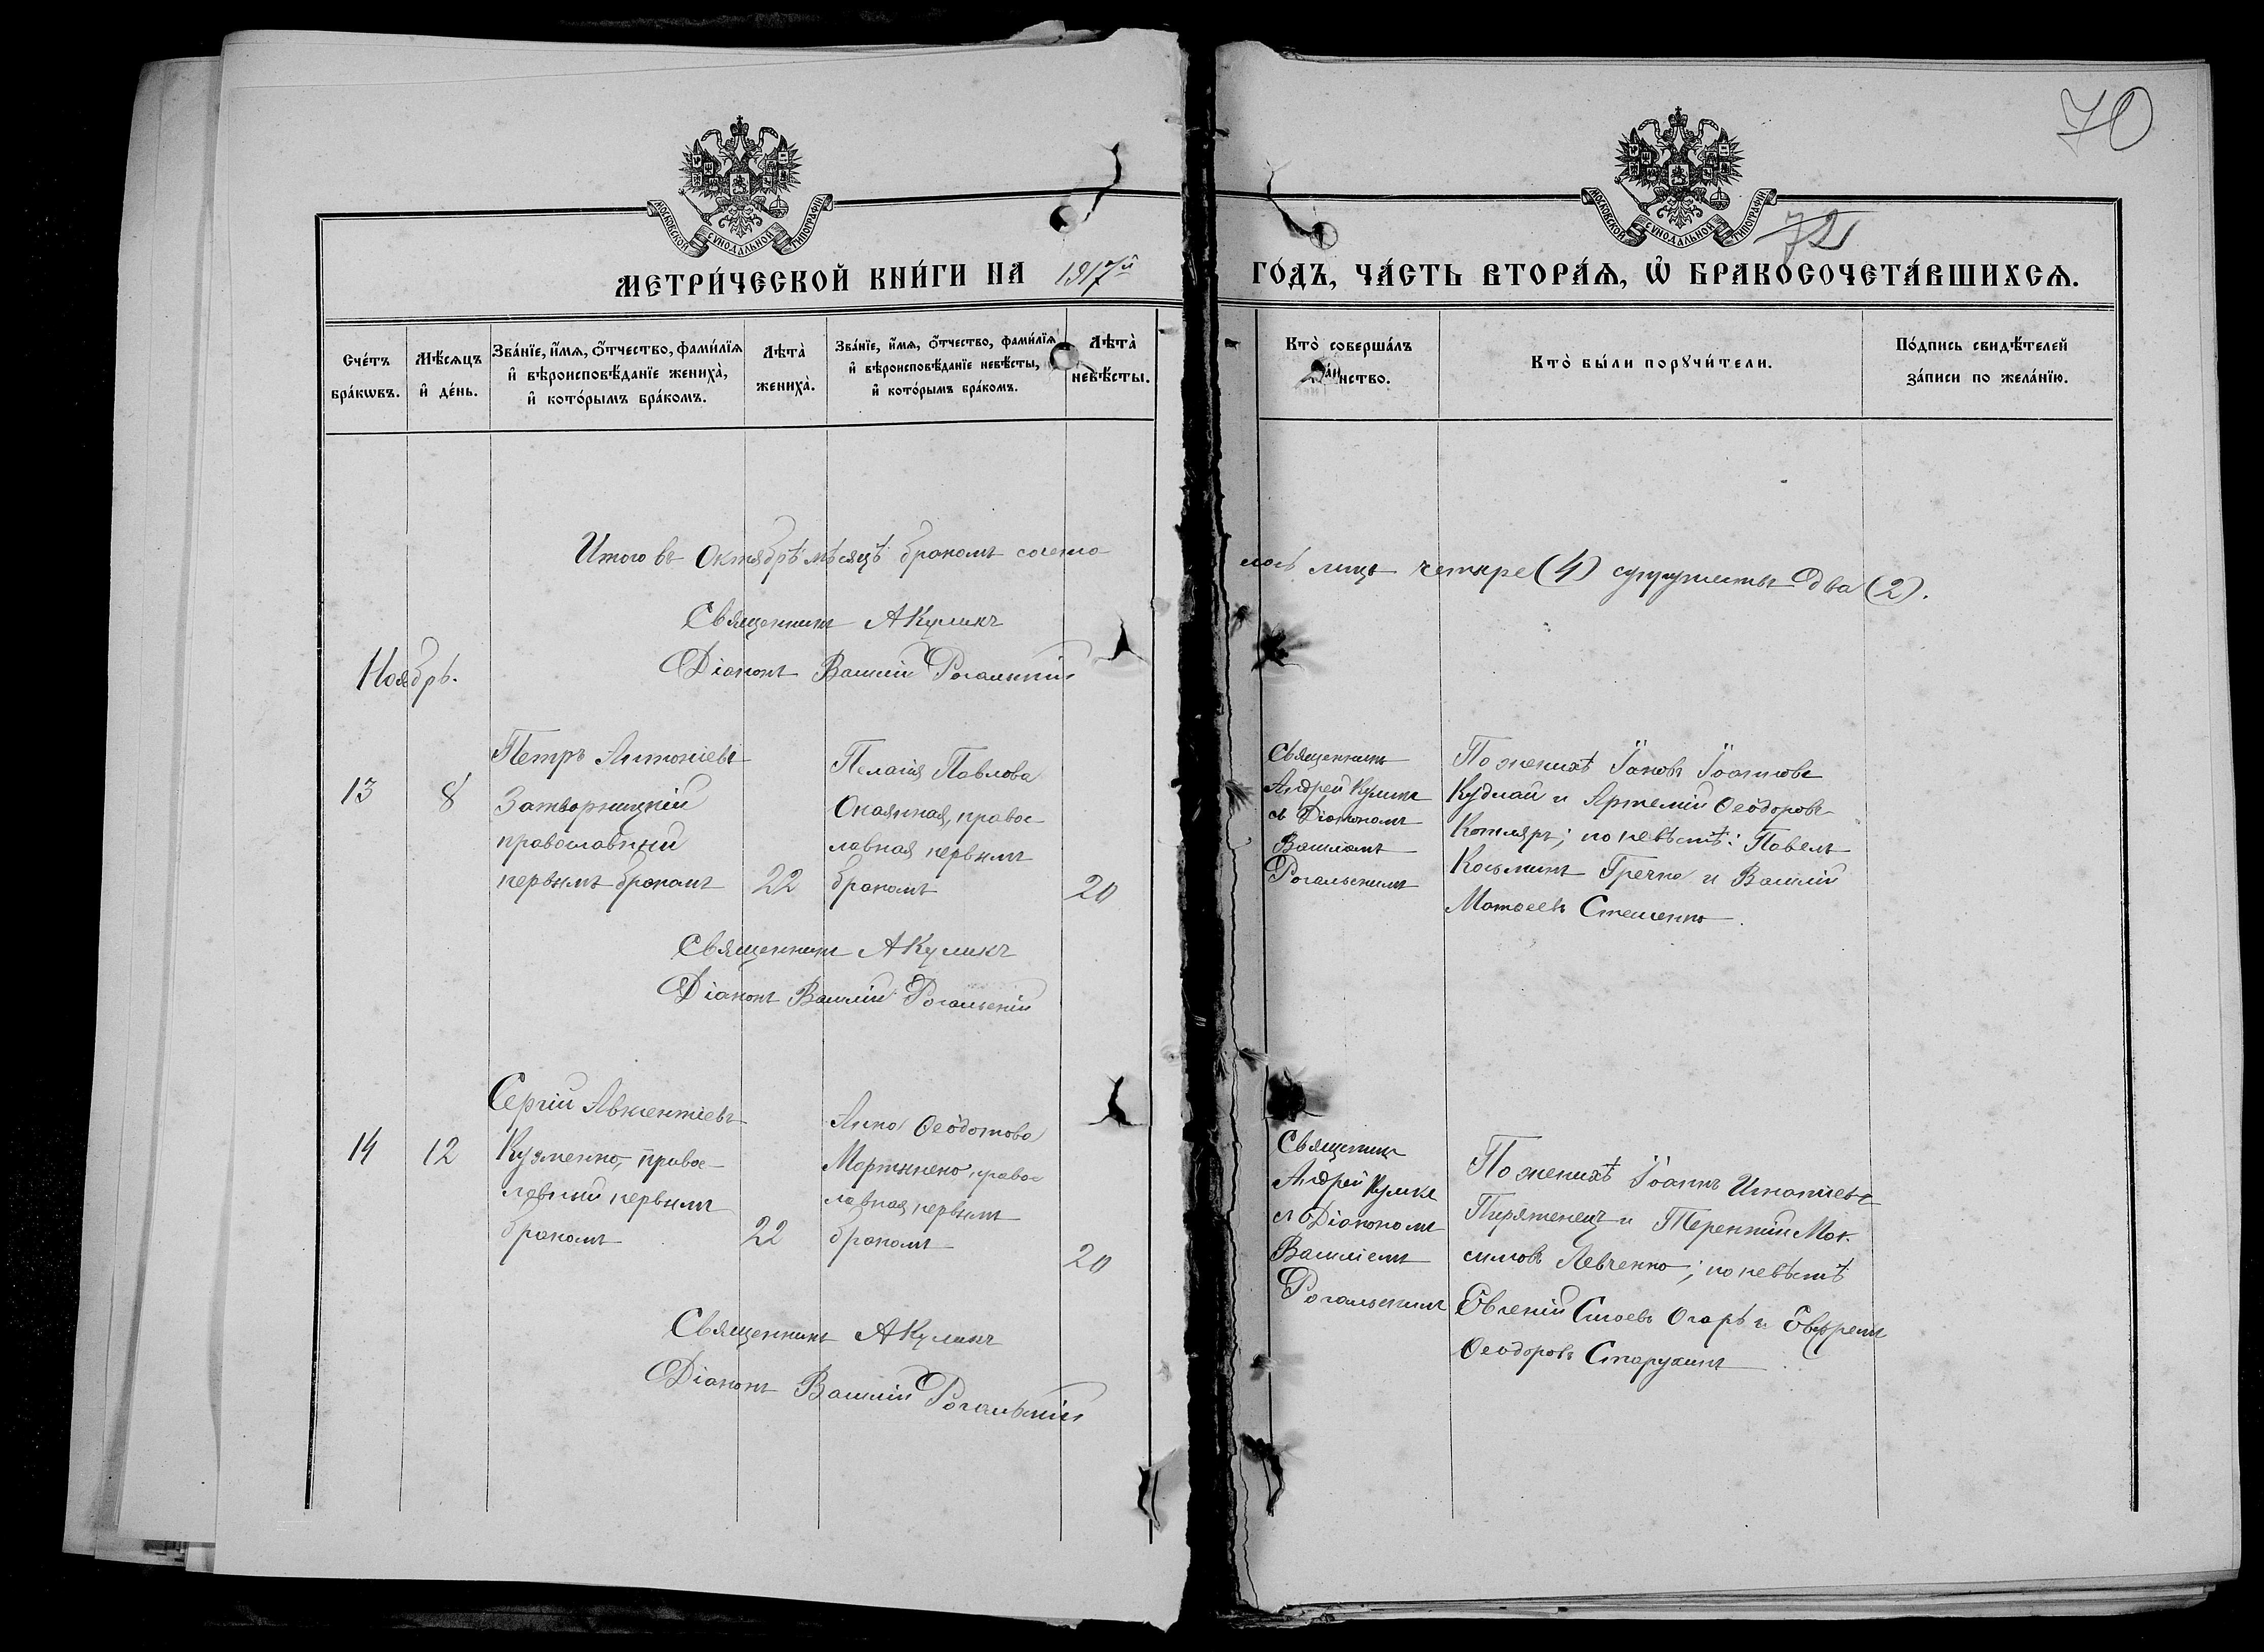 70
МОСКОВСКОЙ СѴНОДАЛЬНОЙ ТИПОГРАФІИ
МОСКОВСКОЙ СѴНОДАЛЬНОЙ ТИПОГРАФІИ
72
МЕТРИ́ЧЕСКОЙ КНИ́ГИ НА 1917й ГО́ДЪ, ЧА́СТЬ ВТОРА́Ѧ, Ѡ҆ БРАКОСОЧЕТА́ВШИХСѦ.
Сче́тъ бра́кѡвъ.
Мѣ́сѧцъ и҆ де́нь.
Зва́нїе, и҆́мѧ, ѻ҆́тчество, фами́лїѧ и҆ вѣроисповѣ́данїе жениха̀, и҆ кото́рымъ бра́комъ.
Лѣта̀ жениха̀.
Зва́нїе, и҆́мѧ, ѻ҆́тчество, фами́лїѧ и҆ вѣроисповѣ́данїе невѣ́сты, и҆ кото́рымъ бра́комъ.
Лѣта̀ невѣ́сты.
Кто̀ соверша́лъ таинство.
Кто̀ бы́ли порꙋчи́тели.
По́дпись свидѣ́телей за́писи по жела́нїю.
Итого въ Октябрѣ мѣсяцѣ бракомъ сочета
лось лицъ четыре (4) супружествъ два (2).
Священникъ А Куликъ
Діаконъ Василій Рогальскій
Ноябрь.
13
8
Петръ Антоніевъ
Затворницкій
православный
первымъ бракомъ
22
Пелагія Павлова
Окаянная, правос
лавная первымъ
бракомъ
20
Священникъ
Андрей Куликъ
съ Діакономъ
Василіемъ
Рогальскимъ
По женихѣ Іаковъ Іоанновъ
Кудлай и Артемій Ѳеодоровъ
Котляръ; по невѣстѣ: Павелъ
Косьминъ Гречка и Василій
Матѳеевъ Стешенко.
Священникъ А Куликъ
Діаконъ Василій Рогальскій
14
12
Сергій Авксентіевъ
Кузменко, правос
лавный первымъ
бракомъ
22
Анна Ѳеодотова
Мартынено, правос
лавная первымъ
бракомъ
20
Священикъ
Андрей Куликъ
съ Діакономъ
Василіемъ
Рогальскимъ
По женихѣ Іоаннъ Игнатіевъ
Пирятенецъ и Терентій Мак
симовъ Левченко; по невѣстѣ
Евгеній Огарь и Евфремъ
Ѳеодоровъ Старухинъ
Священникъ А Куликъ
Діаконъ Василій Рогальскій